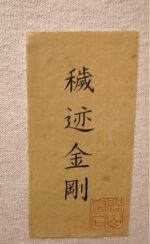 穢迹金剛